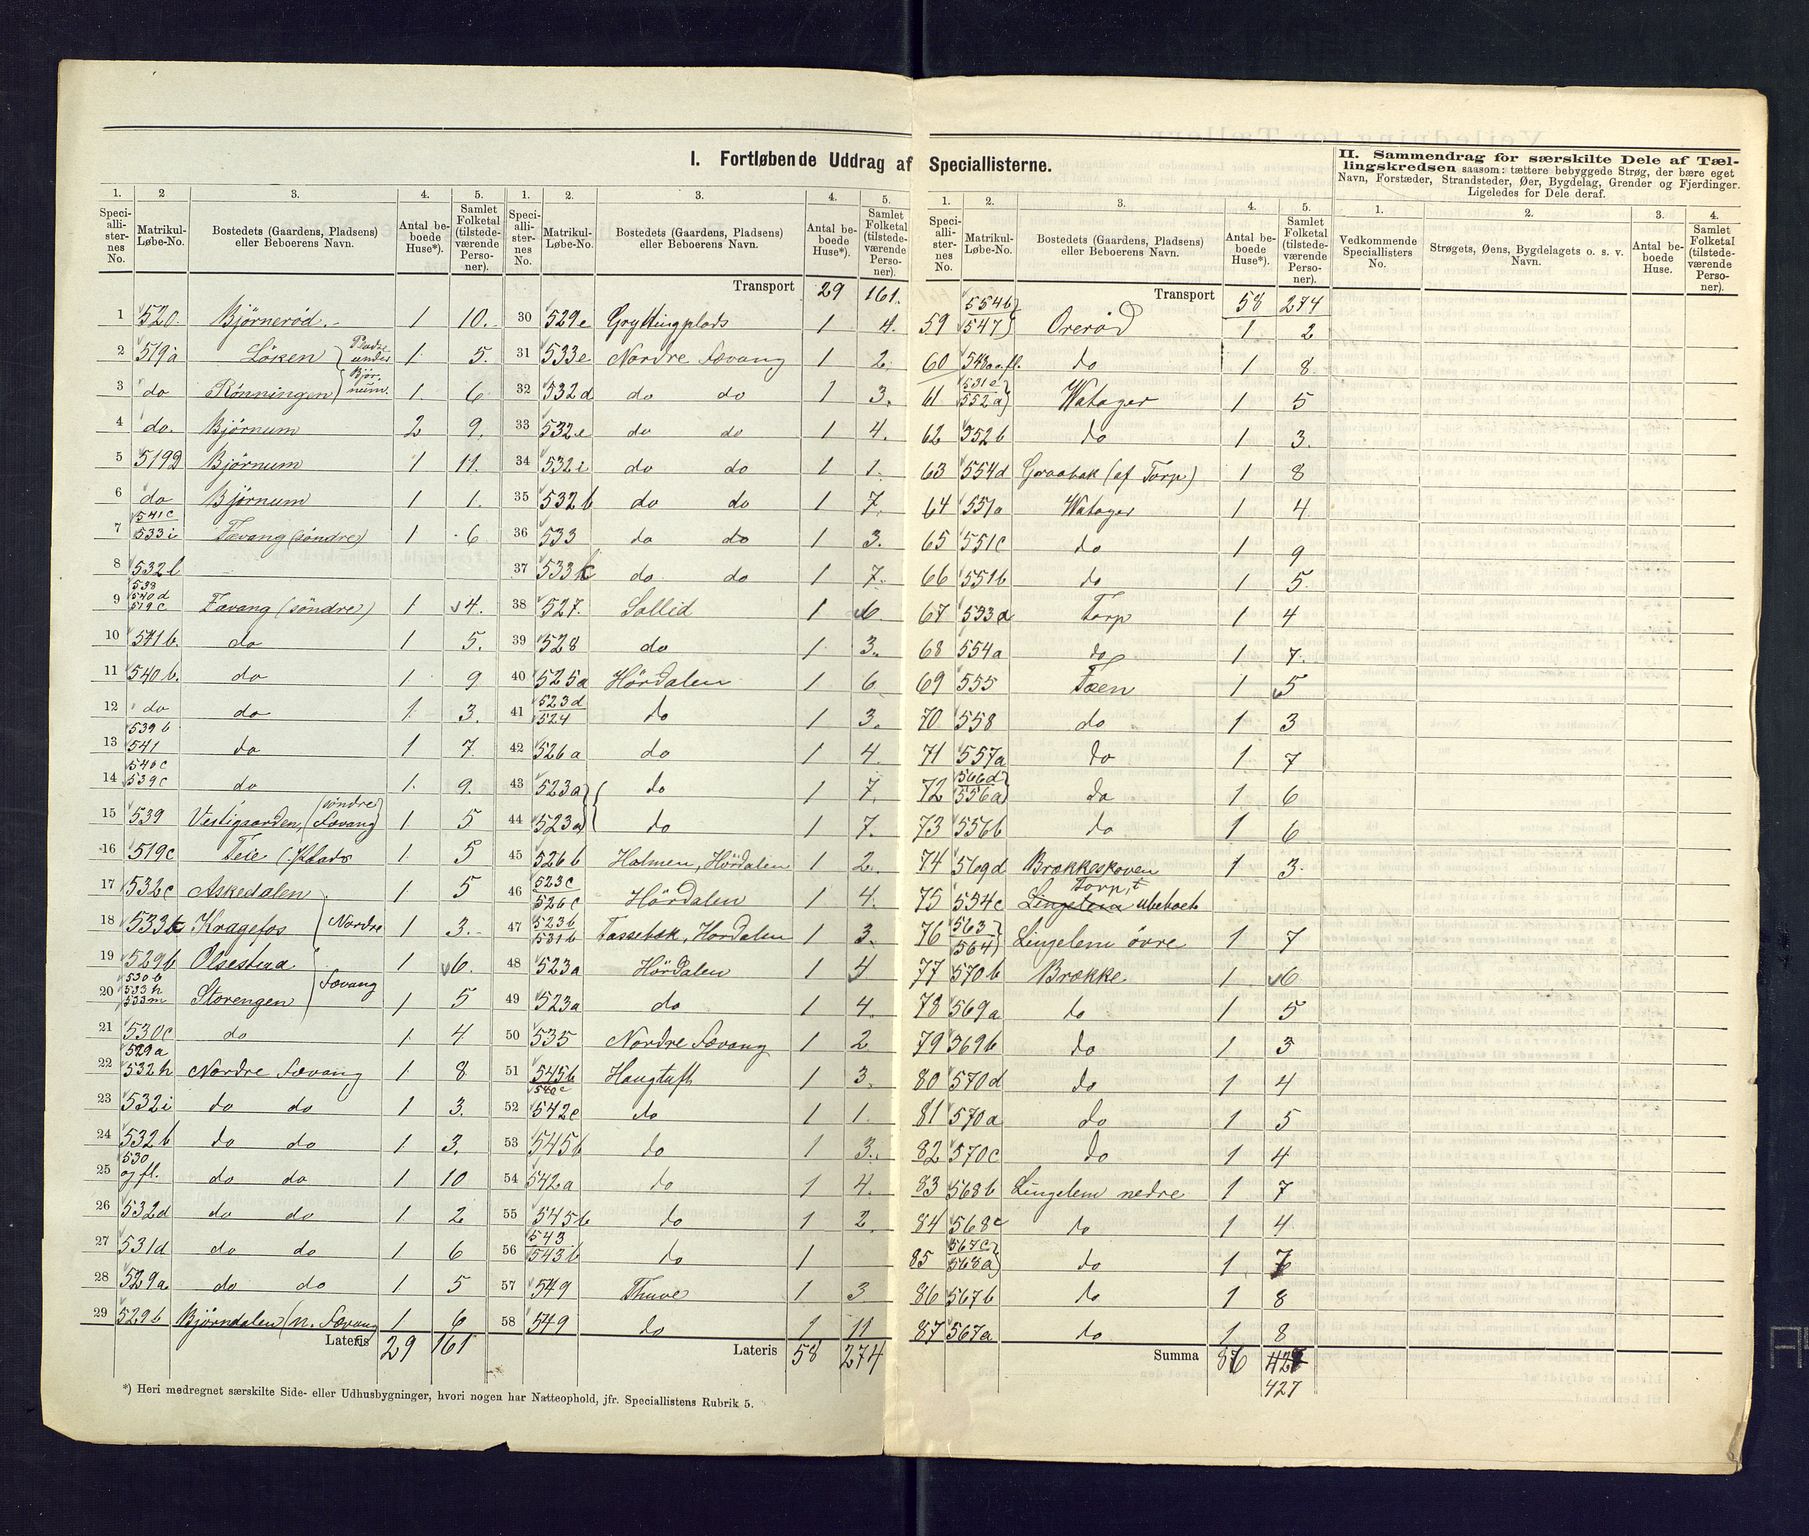 I. Fortløbende Uddrag af Speciallisterne.
II. Sammendrag for særskilte Dele af Tæl-
lingskredsen saasom: tættere bebyggede Strøg, der bære eget
Navn, Forstæder, Strandsteder, Øer, Bygdelag, Grender og Fjerdinger.
Ligeledes for Dele deraf.
1. 2 3. 4. 5.
Speci-alli-ster-nes No. Matrikul-Løbe-No. Bostedets (Gaardens, Pladsens) eller Beboerens Navn. Antal be-boede Huse*). Samlet Folketal (tilstede-værende Perso-ner).
1 520. Bjørnerød. 1 10.
2 519a Löken Pladse under Bjør-num. 1 5.
3 do Rönningen 1 6
4 do. Bjørnum 2 9.
5 519D Bjørnum 1 11.
6 do Bjørnum 1 1.
7 541c 533i Fævang (söndre) 1 6
8 532l
9 538 540d 519c Fævang (söndre) 1 4.
10 541b. do 1 5.
11 540b. do 1 9
12 do do 1 3.
13 539b 541 do 1 7.
14 540c 539c do 1 9.
15 539 Vestigaarden, (söndre Fævang) 1 5
16 519c Teie (Plads 1 5
17 532c Askedalen 1 5
18 533k Kragefos Nordre 1 3.
19 529b Olsestua 1 6.
20 530b 533h 533m Storengen Fævang 1 5
21 530c do 1 4
22 529a 532h Nordre Fævang 1 8
23 532i do do 1 3.
24 532b do do 1 3.
25 530 og fl. do do 1 10
26 532d do do 1 2
27 531d do do 1 6
28 529a do do 1 5
29 529b Bjørndalen (n. Fævang 1 6
Lateris 29 161
1. 2. 3. 4. 5.
Speci-alli-ster-nes No. Matrikul-Løbe-No. Bostedets (Gaardens, Pladsens) eller Beboerens Navn. Antal be-boede Huse*). Samlet Folketal (tilstede-værende Perso-ner).
Transport 29 161.
30 529e Gryttingplads 1 4.
31 533e Nordre Fævang 1 2.
32 532d do do 1 3.
33 532e do do 1 4.
34 532i do do 1 1.
35 532b do do 1 7.
36 533 do do 1 3.
37 533k do do 1 7.
38 527. Sollid 1 6.
39 528 do 1 3.
40 525a Hördalen 1 6
41 523d 524 do 1 3.
42 526a do 1 4.
43 523a do 1 7.
44 523a do 1 7.
45 526b Holmen, Hördalen 1 2.
46 523c 526c Hördalen 1 4.
47 523b 531b Tassebæk, Hordalen 1 3.
48 523a Hördalen 1 4
49 523a do 1 4.
50 535 Nordre Fævang 1 2.
51 545b 540c Haugtuft 1 3.
52 542c do 1 1.
53 545b do 1 3.
54 542a do 1 4.
55 545b do 1 2.
56 543 543b do 1
57 549 Thuve 1 3.
58 549 do 1 11
Lateris 58 274
*) Heri medregnet særskilte Side- eller Udhusbygninger, hvori nogen har Natteophold, jfr. Speciallistens Rubrik 5.
1. 2. 3. 4. 5.
Speci-alli-ster-nes No. Matrikul-Løbe-No. Bostedets (Gaardens, Pladsens) eller Beboerens Navn. Antal be-boede Huse*). Samlet Folketal (tilstede-værende Perso-ner).
Transport 58 274
59 554b 547 Orerød 1 2
60 548a o. fl. do 1 8
61 531e 552a Watager 1 5
62 552b do 1 3.
63 554d Graabæk (af Torp) 1 8
64 551a Watager 1 4.
65 551c do 1 9
66 551b do 1 5.
67 553a Torp 1 4
68 554a do 1 7.
69 555 Föen 1 5
70 558 do 1 3
71 557a do 1 7
72 566d 556a do 1 6
73 556b do 1 6
74 569d Brækkeskoven 1 3.
75 554c Lingelem Torp, ubeboet
76 563 564 Lingelem övre 1 7
77 570b Brække 1 6
78 569a do 1 5
79 569b do 1 3
80 570d do 1 4
81 570a do 1 5
82 570c do 1 4
83 568b Lingelem nedre 1 7
84 568c do 1 4
85 567c 568a do 1 7
86 567b do 1 8
87 567a do 1 8
Summa 86 427
427
1. 2. 3. 4.
Vedkommende Speciallisters No. Strøgets, Øens, Bygdelagets o. s. v. Navn. Antal be-boede Huse. Samlet Folketal (tilstede-værende Perso-ner).